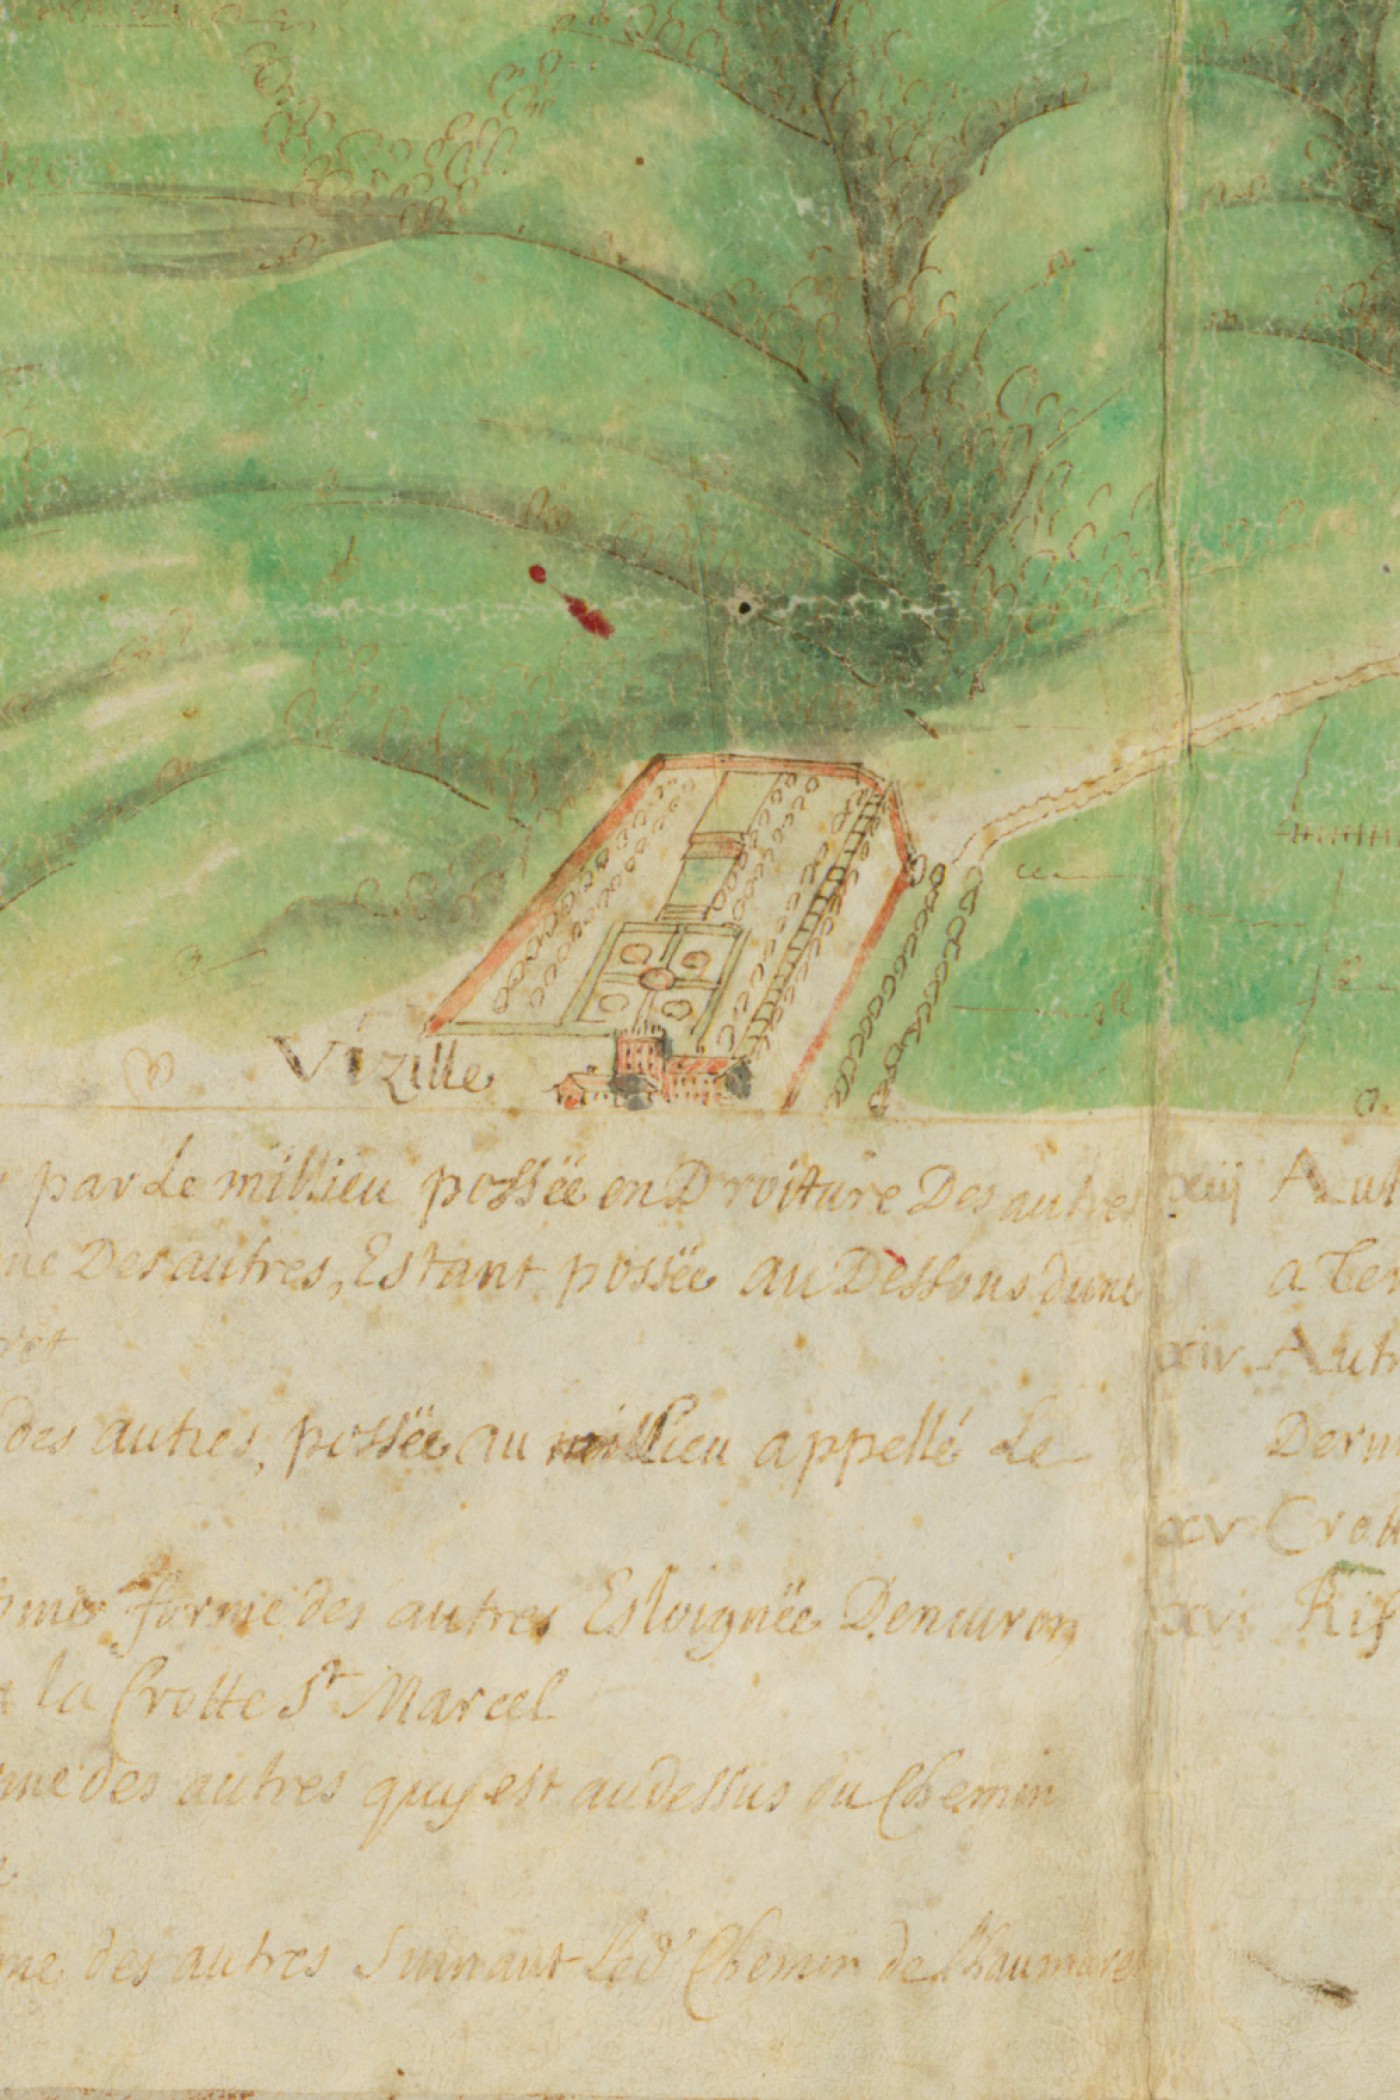 Vizille
par Le millieu possëe en Droiture Des autres
Des autres, Estant possëe au Dessous dune
des autres, possëe au millieu appellé Le
forme des autres Esloignëe Denuiron
la Crotte St Marcel
des autres quy est au dessus du Chemin
des autres Suiuant Led Chemin de
xiij
a
xiv
xv
xvi